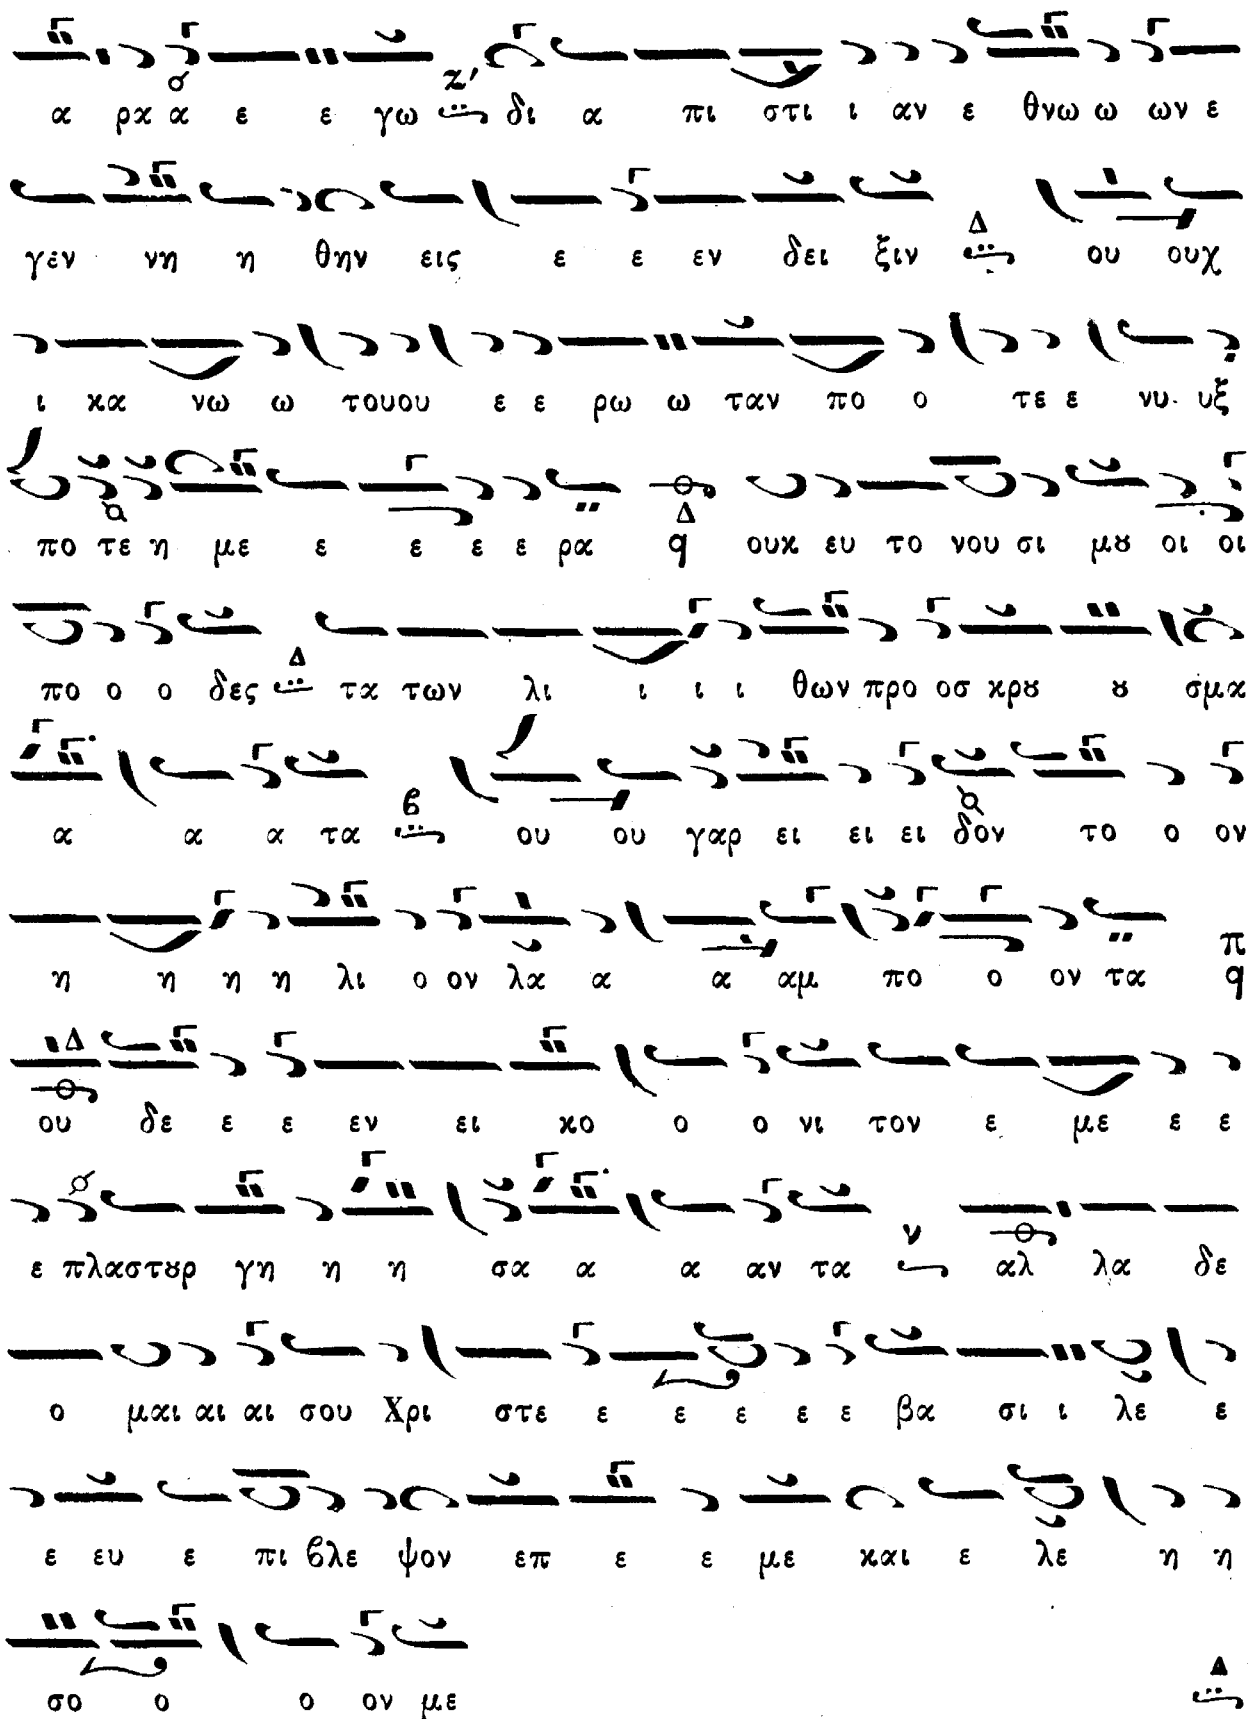 α ρα α ε ε γω ζ' δι α πι στι ι αν ε θνω ω ων ε
γεν νη η θην εις ε ε εν δει ξιν Δ ου ουχ
ι κα νω ω τουου ε ε ρω ω ταν πο ο τε ε νυ υξ
πο τε η με ε ε ε ε ρα Δ q ουκ ευ το νου σι μȣ οι οι
πο ο ο δες Δ τα των λι ι ι ι θων προ οσ κρȣ ȣ σμα
α α α τα β ου ου γαρ ει ει ει δον το ο ον
η η η η λι ο ον λα α α αμ πο ο ον τα π q
Δ ου δε ε ε εν ει κο ο ο νι τον ε με ε ε
ε πλαστȣρ γη η η σα α α αν τα ν αλ λα δε
ο μαι αι αι σου Χρι στε ε ε ε ε ε βα σι ι λε ε
ε ευ ε πι βλε ψον επ ε ε με και ε λε η η
σο ο ο ον με Δ